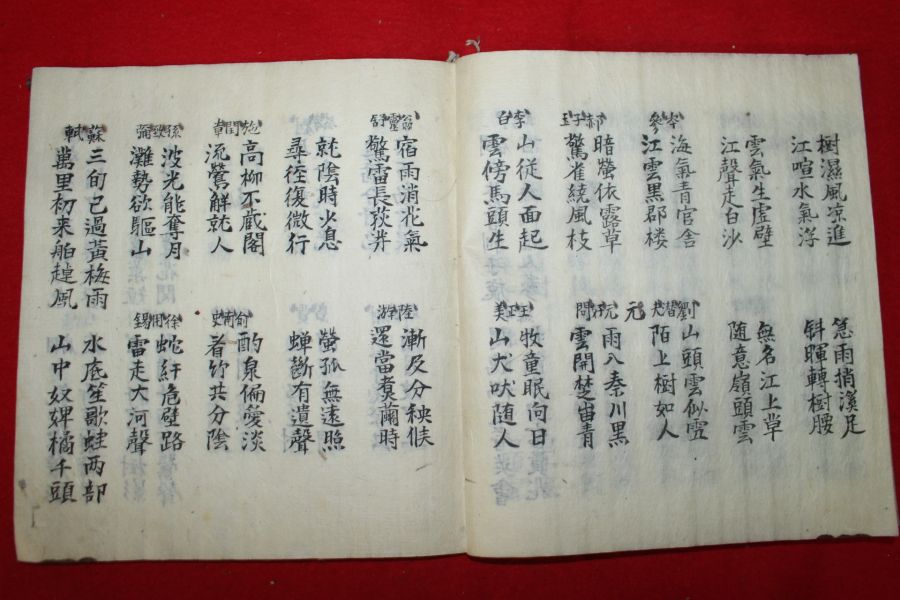 樹濕風凉進
江喧水氣浮
急雨捎溪足
斜暉轉樹腰
雲氣生虛壁
江聲走白沙
無名江上草
随意嶺頭雲
岑參
海氣青官舍
江雲黑郡楼
劉潛夫
山頭雲似雪
陌上樹如人
郝子玉
暗螢依露草
驚雀繞風枝
元
元好問
雨入秦川黑
雲開楚岫青
李白
山從人面起
雲傍馬頭生
王玉美
牧童眠向日
山犬吠随人
翁靈舒
宿雨消花氣
驚雷長荻芽
陸游
漸及分秧候
還當煮繭時
就陰時少息
尋徑復微行
螢孤無遠照
蟬斷有遺聲
施閏章
高柳不藏閣
流鶯解就人
俞南史
酌泉偏愛淡
看竹共分陰
孫致彌
波光能奪月
灘勢欲驅山
徐用錫
蛇紆危壁路
雷走大河聲
蘇軾
三旬已過黃梅雨
萬里初来舶趠風
水底笙歌蛙两部
山中奴婢橘千頭